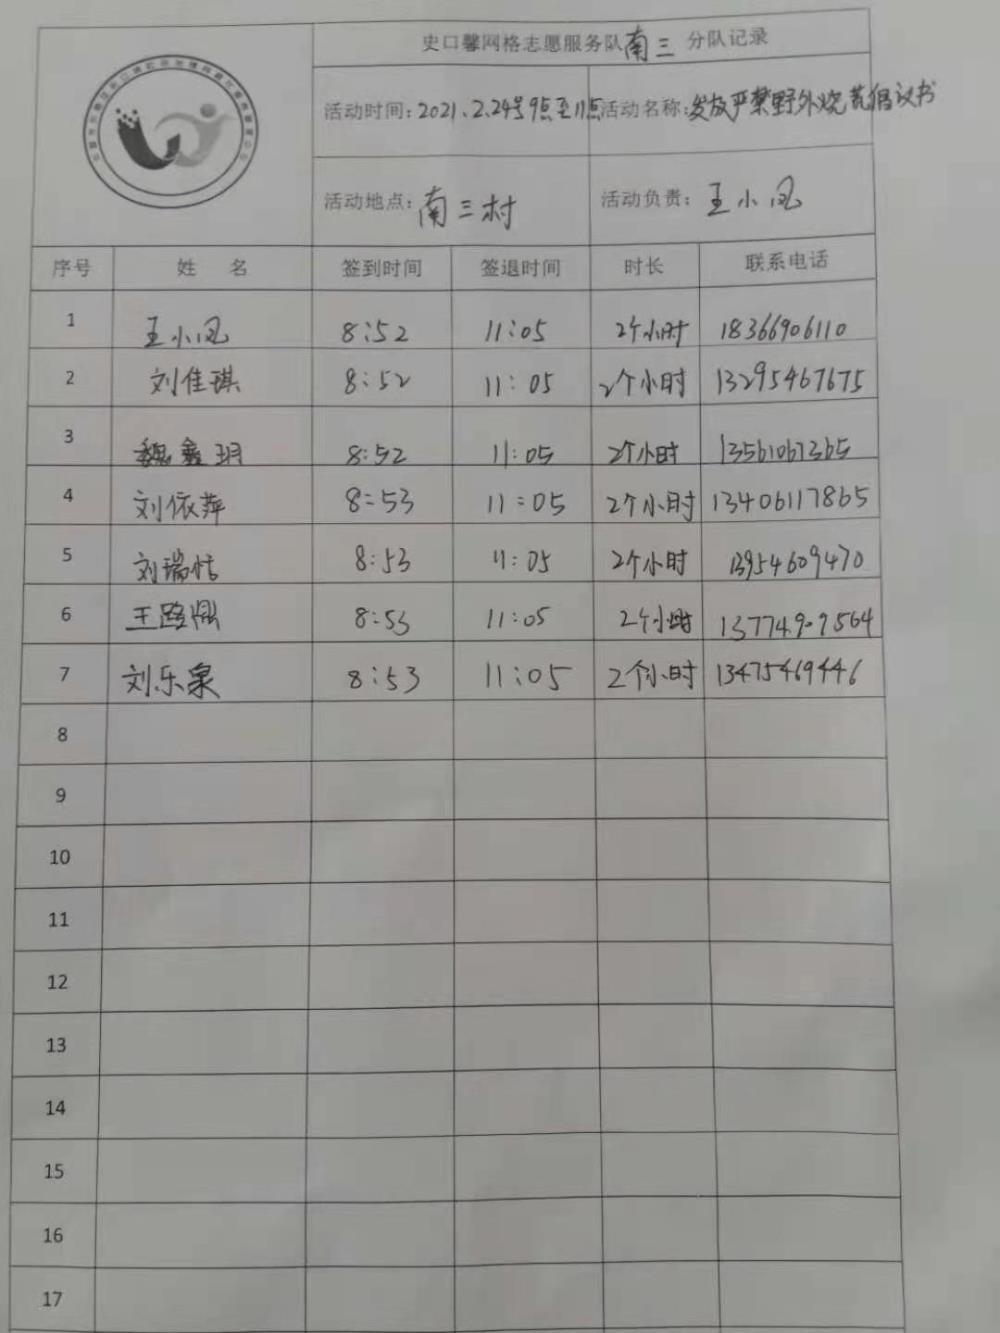 史口馨网格志愿服务队南三 分队记录
活动时间：2021、2.24号9点至11点 活动名称：发放严禁野外烧荒倡议书
活动地点：南三村 活动负责：王小凤
序号 姓 名 签到时间 签退时间 时长 联系电话
1 王小凤 8:52 11:05 2个小时 18366906110
2 刘佳琪 8:52 11:05 2个小时 13295467675
3 魏鑫玥 8:52 11:05 2个小时 13561067365
4 刘依萍 8:53 11:05 2个小时 13406117865
5 刘瑞恬 8:53 11:05 2个小时 13954609470
6 8:53 11:05 2个小时 13774909564
7 刘乐泉 8:53 11:05 2个小时 13475469446
8
9
10
11
12
13
14
15
16
17